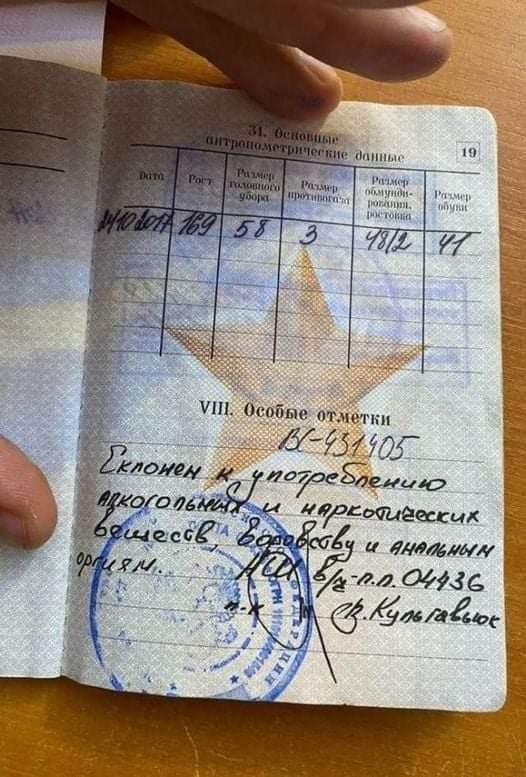 31. Основные
антропометрические данные
19
Дата Рост Размер головного убора Размер противогаза Размер обмунди-рования, ростовка Размер обуви
10.2017 169 58 3 48/2 41
VIII. Особые отметки
ВС-431405
Склонен к употреблению
алкогольных и наркотических
веществ, воровству и анальным
оргиям. в/ч-п.п. 04436
п-к Кульгавьюк